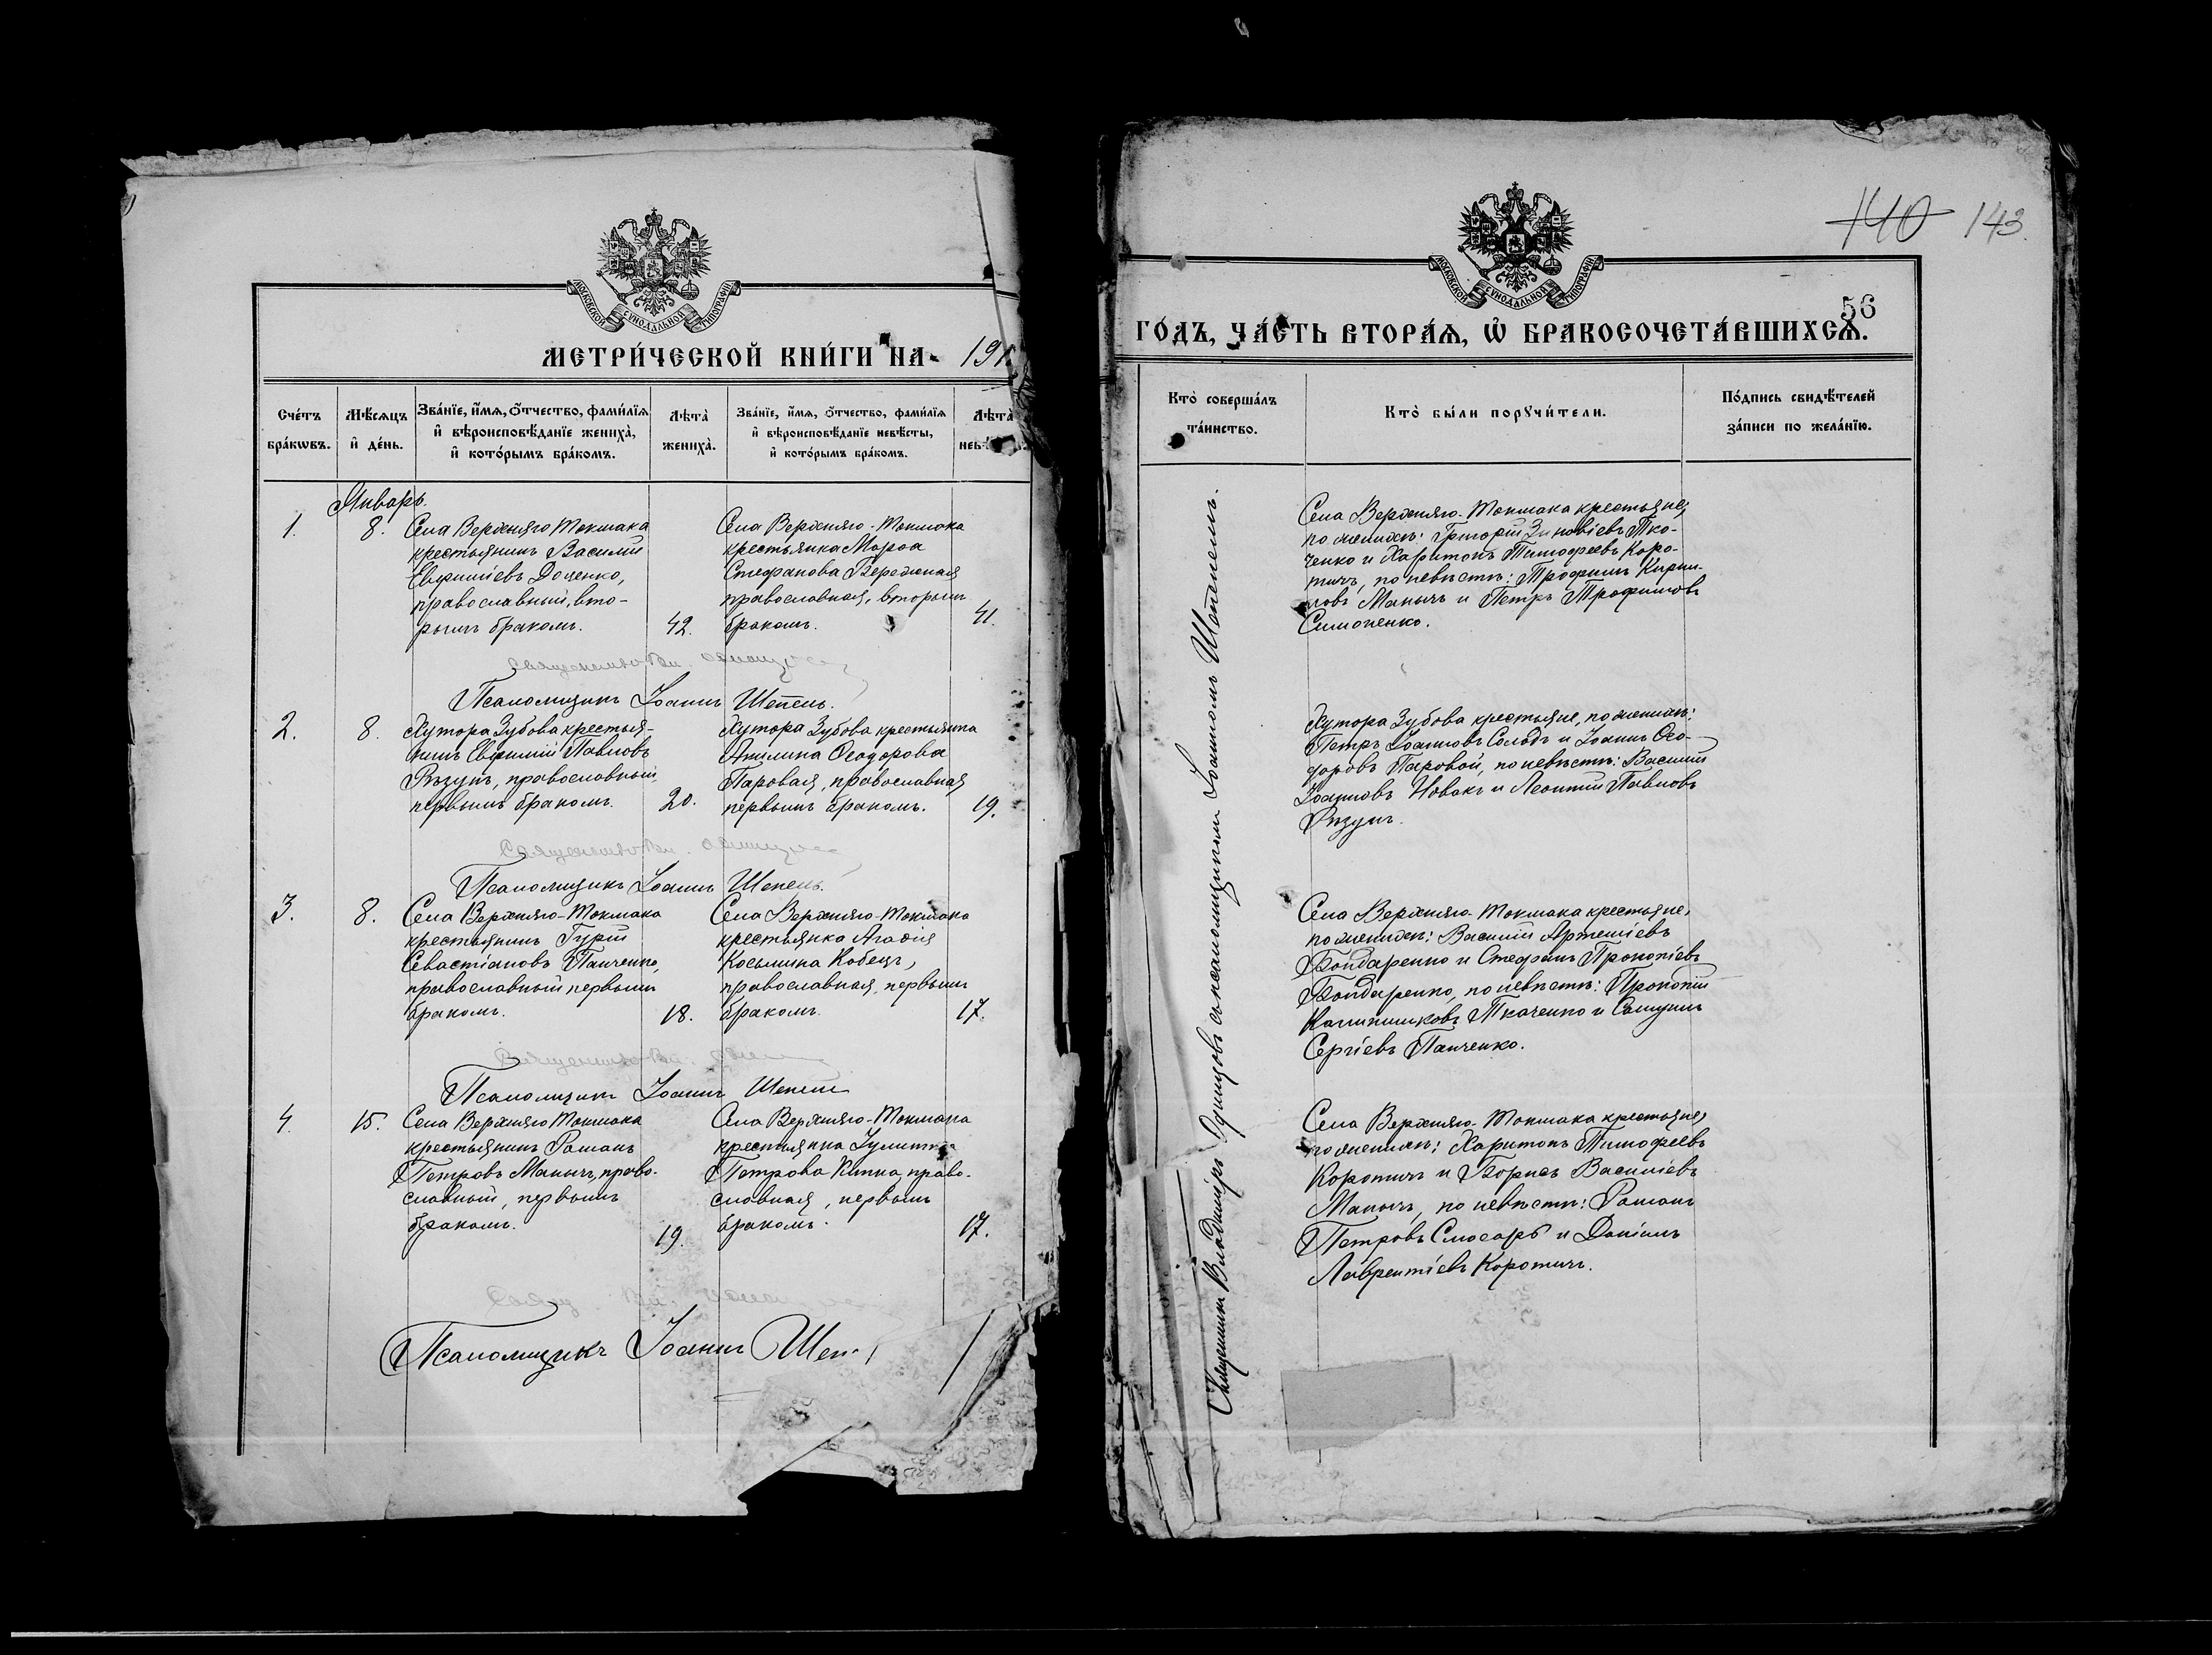 МОСКОВСКОЙ СѴНОДАЛЬНОЙ ТИПОГРАФІИ
МЕТРИ́ЧЕСКОЙ КНИ́ГИ НА 191
Сче́тъ бра́кѡвъ.
Мѣ́сѧцъ и҆ де́нь.
Зва́нїе, и҆́мѧ, ѻ҆́тчество, фами́лїѧ
и҆ вѣроисповѣ́данїе жениха̀,
и҆ кото́рымъ бра́комъ.
Лѣта̀ жениха̀.
Зва́нїе, и҆́мѧ, ѻ҆́тчество, фами́лїѧ
и҆ вѣроисповѣ́данїе невѣ́сты,
и҆ кото́рымъ бра́комъ.
Лѣта̀
Январь.
1.
8.
Села Верхняго Токмака
крестьянинъ Василій
Евфиміевъ Доценко,
православный, вто-
рымъ бракомъ.
42.
Села Верхняго-Токмака
крестьянка Марѳа
Стефанова Бережная
православная, вторымъ
бракомъ.
41.
Псаломщикъ Іоаннъ Шепель.
2.
8.
Хутора Зубова крестья-
нинъ Евфимій Павловъ
Рѣзунъ, православный
первымъ бракомъ.
20.
Хутора Зубова крестьянка
Акилина Ѳеодорова
Паровая, православная
первымъ бракомъ.
19.
Псаломщикъ Іоаннъ Шепель.
3.
8.
Села Верхняго-Токмака
крестьянинъ Гурій
Севастіановъ Панченко,
православный первымъ
бракомъ.
18.
Села Верхняго-Токмака
крестьянка Агаѳія
Косьмина Кобецъ,
православная, первымъ
бракомъ.
17.
Псаломщикъ Іоаннъ Шепель
4.
15.
Села Верхняго Токмака
крестьянинъ Романъ
Петровъ Манычъ, право-
славный, первымъ
бракомъ.
19.
Села Верхняго-Токмака
крестьянка Іулитта
Петрова Кипка, право-
славная, первымъ
бракомъ.
17.
Псаломщикъ Іоаннъ Шеп
140 143.
МОСКОВСКОЙ СѴНОДАЛЬНОЙ ТИПОГРАФІИ
56
ГО́ДЪ, ЧА́СТЬ ВТОРА́Ѧ, Ѽ БРАКОСОЧЕТА́ВШИХСѦ.
Кто̀ соверша́лъ
та́инство.
Кто̀ бы́ли порꙋчи́тели.
По́дпись свидѣ́телей
за́писи по жела́нїю.
Священникъ Владиміръ Одинцовъ съ псаломщикомъ Іоанномъ Шепелемъ.
Села Верхняго-Токмака крестьяне,
по женихѣ: Григорій Зиновіевъ Тка-
ченко и Харитонъ Тимофеевъ Коро-
тичъ, по невѣстѣ: Трофимъ Кирил-
ловъ Манычъ и Петръ Трофимовъ
Симоненко.
Хутора Зубова крестьяне, по женихѣ:
Петръ Іоанновъ Солодъ и Іоаннъ Ѳео-
доровъ Паровой, по невѣстѣ: Василій
Іоанновъ Новакъ и Леонтій Павловъ
Рѣзунъ.
Села Верхняго-Токмака крестьяне,
по женихѣ: Василій Артеміевъ
Бондаренко и Стефанъ Прокопіевъ
Бондаренко, по невѣстѣ: Прокопій
Каллиниковъ Ткаченко и Самуилъ
Сергіевъ Панченко.
Села Верхняго-Токмака крестьяне,
по женихѣ: Харитонъ Тимофеевъ
Коротичъ и Борисъ Василіевъ
Манычъ, по невѣстѣ: Романъ
Петровъ Слюсарь и Даніилъ
Лаврентіевъ Коротичъ.